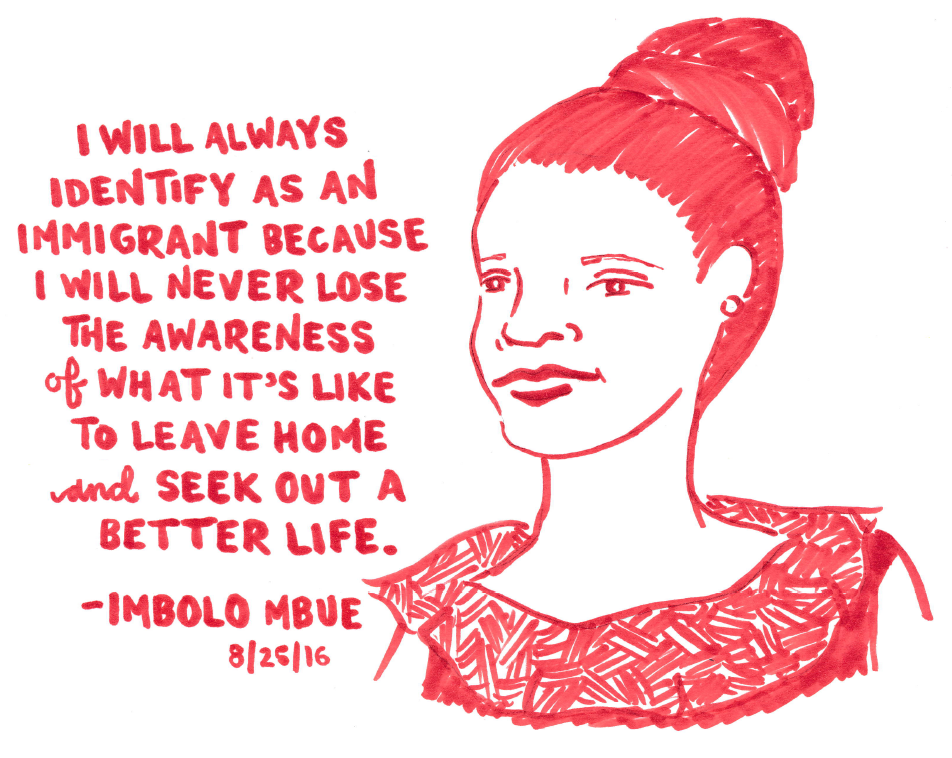 I WILL ALWAYS
IDENTIFY AS AN
IMMIGRANT BECAUSE
I WILL NEVER LOSE
THE AWARENESS
of WHAT IT'S LIKE
TO LEAVE HOME
and SEEK OUT A
BETTER LIFE.
-IMBOLO MBUE
8/25/16